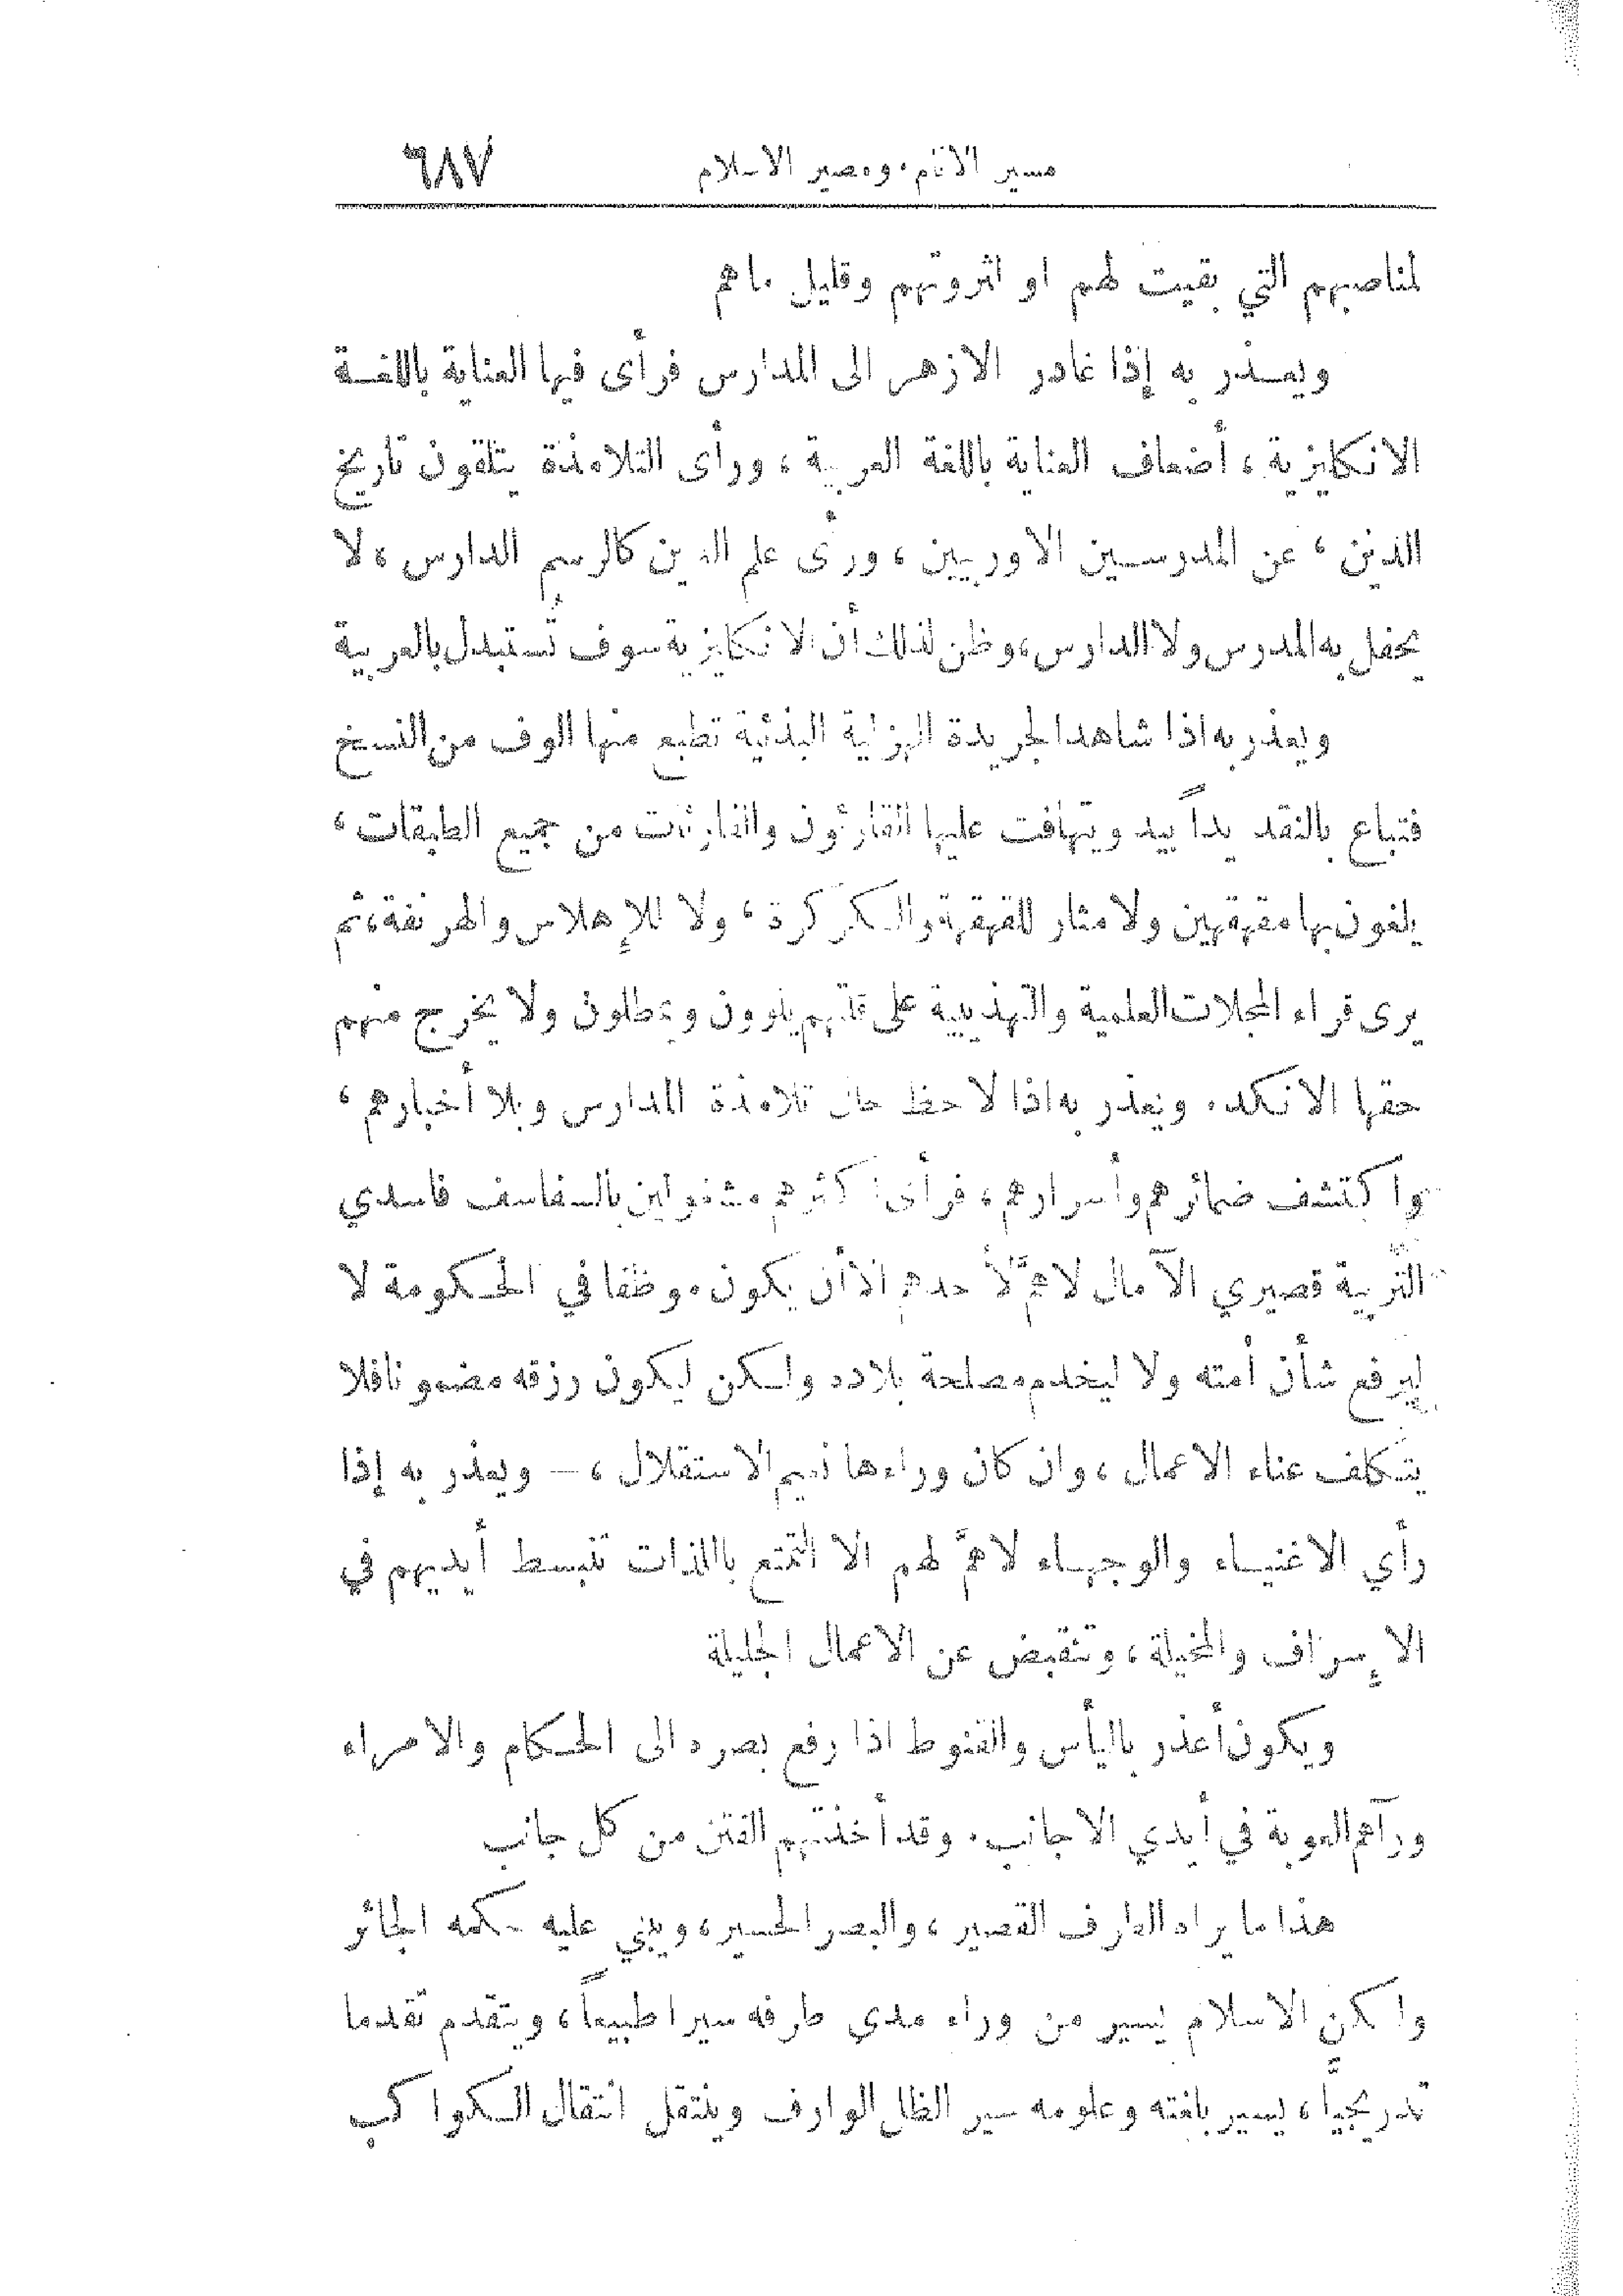 مسير الانام، ومصير الاسلام ٦٨٧
لمناصبهم التي بقيت لهم او لثروتهم وقليل ماهم
ويعـذر به إذا غادر الازهر الى المدارس فرأى فيها العناية باللغـة
الانكليزية، أضعاف العناية باللغة العربية، ورأى التلامذة يتلقون تاريخ
الدين، عن المدرسـين الاوربيين، ورأى علم الدين كالرسم الدارس، لا
يحفل به المدرس ولا الدارس، وظن لذلك أن الانكليزية سوف تُستبدل بالعربية
ويعذر به اذا شاهد الجريدة الهزلية البذئية تطبع منها الوف من النسخ
فتباع بالنقد يداً بيد ويتهافت عليها القارئون والقارئات من جميع الطبقات،
يلغون بها مقهقهين ولا مثار للقهقهة والكركرة، ولا للإهلاس والهرنفة، ثم
يرى قراء المجلات العلمية والتهذيبية على قلتهم يلوون ويمطلون ولا يخرج منهم
حقها الا نكد. ويعذر به اذا لاحظ حال تلامذة المدارس وبلا أخبارهم،
واكتشف ضمائرهم وأسرارهم، فرأى أكثرهم مشغولين بالسفاسف فاسدي
التربية قصيري الآمال لا همَّ لأحدهم إلا أن يكون موظفا في الحكومة لا
ليرفع شأن أمته ولا ليخدم مصلحة بلاده ولـكن ليكون رزقه مضمونا فلا
يتكلف عناء الاعمال، وان كان وراءها نعيم الاستقلال، – ويعذر به إذا
رأي الاغنيـاء والوجهـاء لا همَّ لهم الا التمتع باللذات تنبسط أيديهم في
الإسراف والمخيلة، وتنقبض عن الاعمال الجليلة
ويكون أعذر باليأس والقنوط اذا رفع بصره الى الحـكام والامراء
ورآهم العوبة في أيدي الاجانب. وقد أخذتهم الفتن من كل جانب
هذا ما يراه الطرف القصير، والبصر الحسير، ويبني عليه حكمه الجائر
ولكن الاسلام يسير من وراء مدى طرفه سيرا طبيعياً، ويتقدم تقدما
تدريجيّاً، يسير بلغته وعلومه سير الظل الوارف وينتقل انتقال الـكواكب